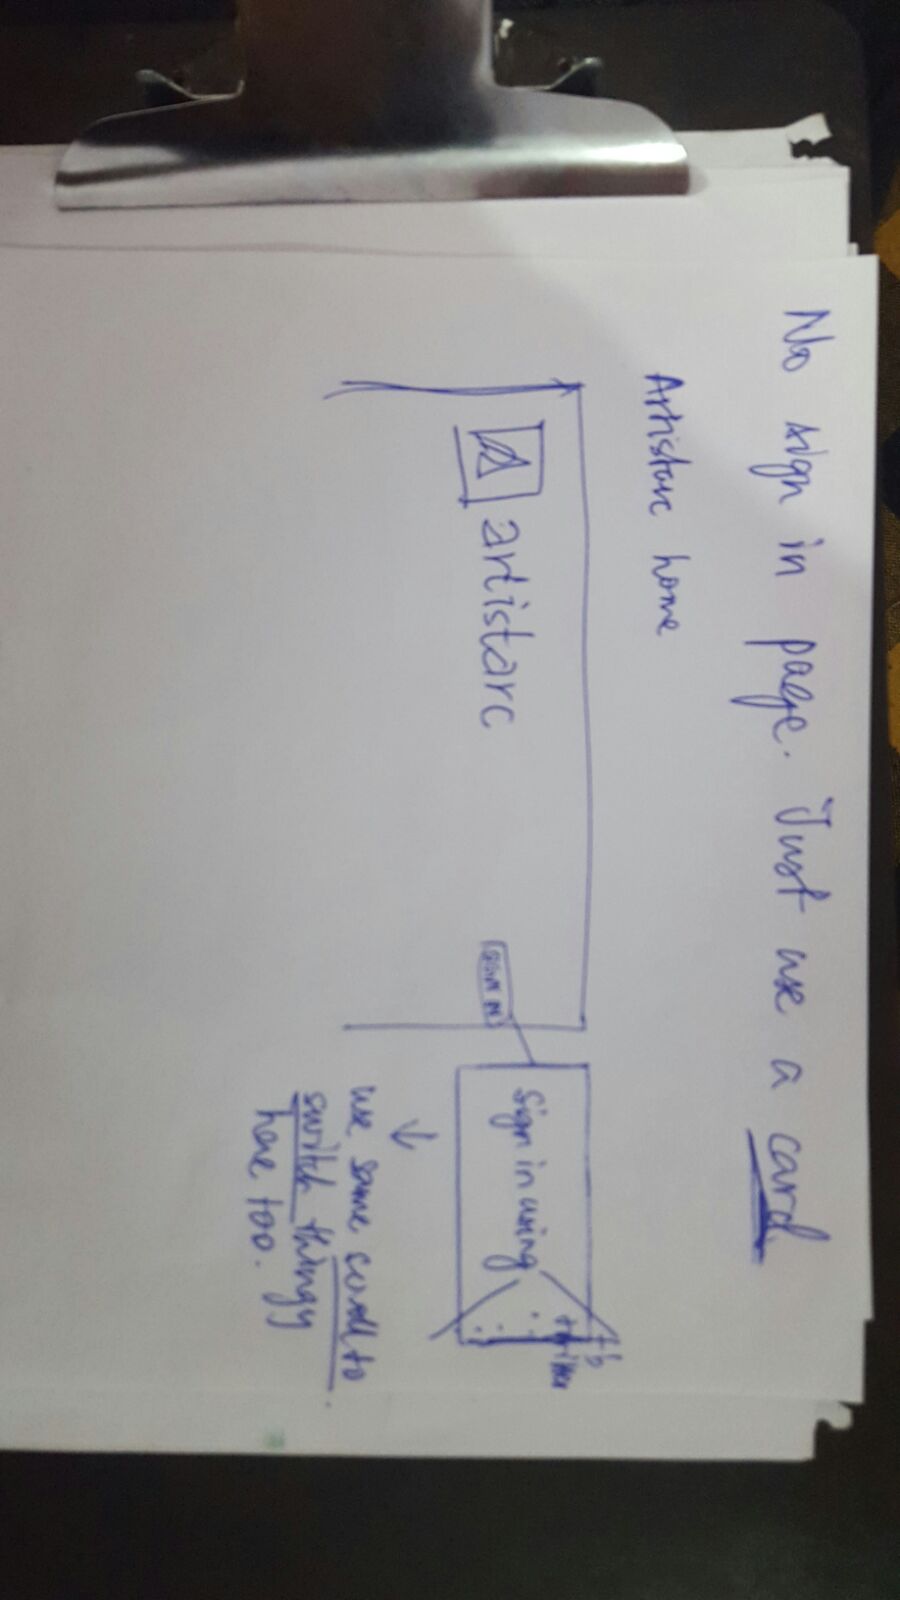 No sign in page. Just use a card
Artistarc home
artistarc
sign in
Sign in using
fb
twitter
use same scroll to
switch thingy
here too.